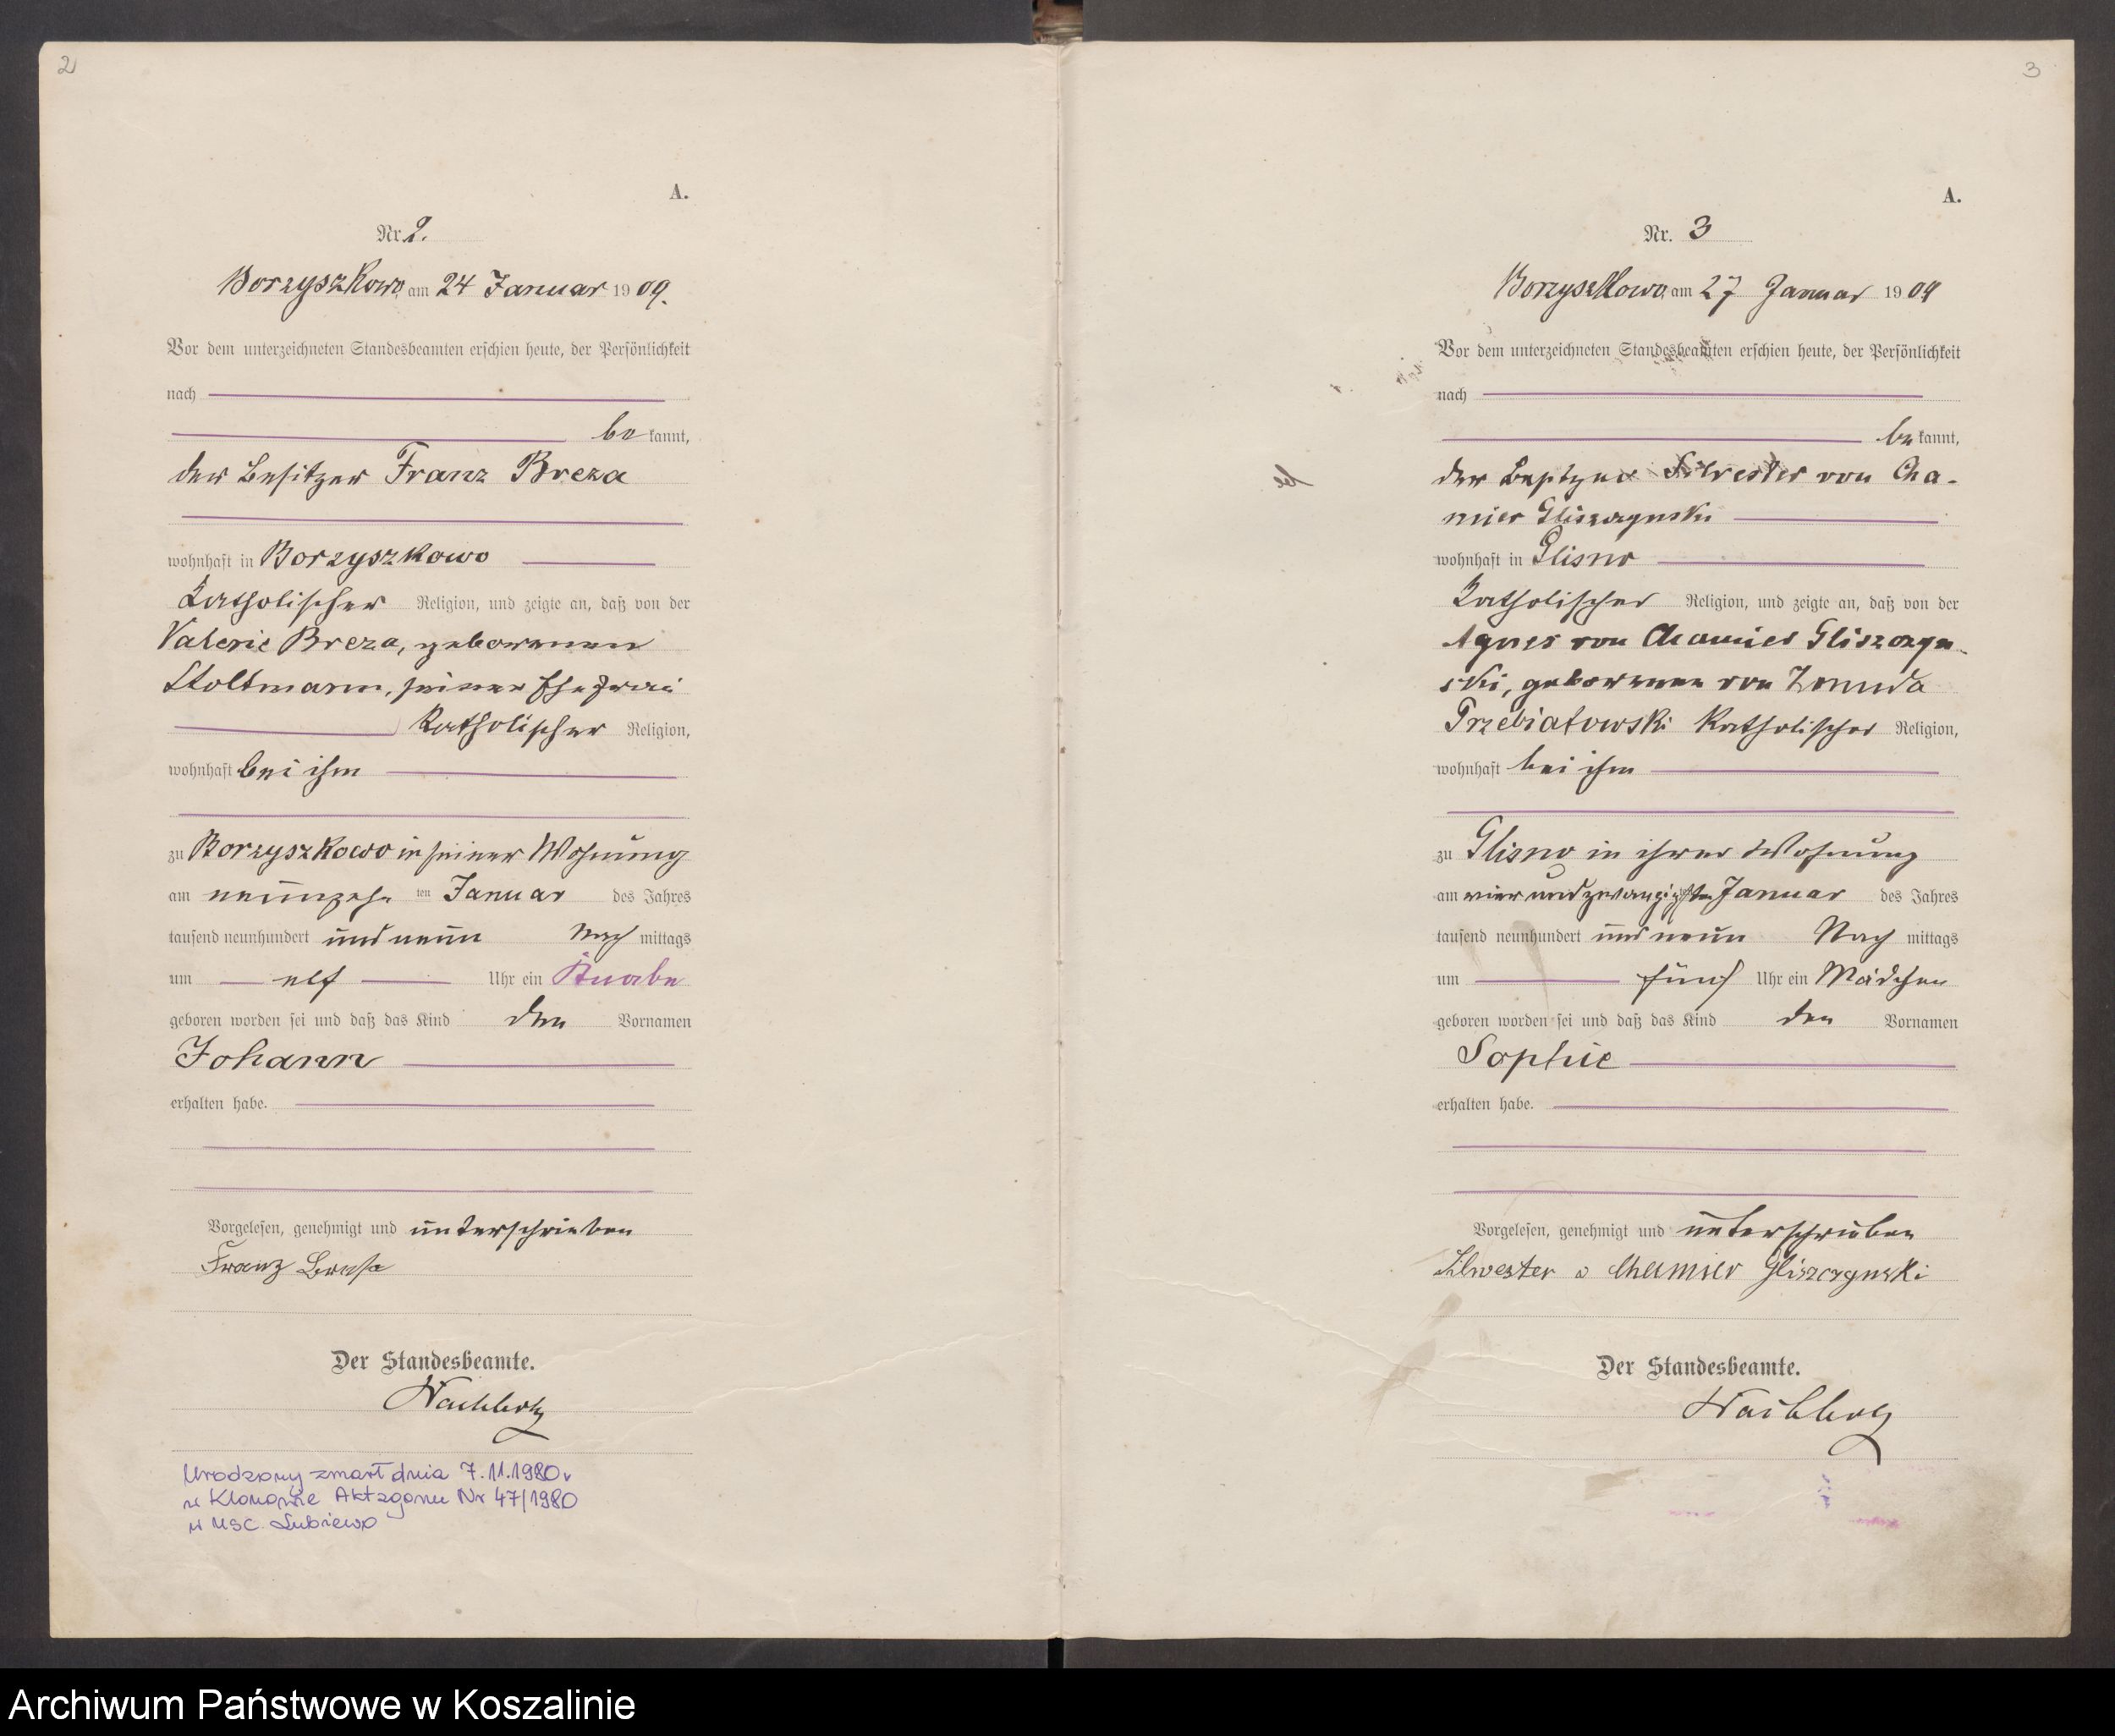 2
A.
Nr. 2.
Borzyszkowo, am 24 Januar 1909.
Vor dem unterzeichneten Standesbeamten erschien heute, der Persönlichkeit
nach
be kannt,
der Besitzer Franz Breza
wohnhaft in Borzyszkowo
Katholischer Religion, und zeigte an, daß von der
Valerie Breza, geborenen
Stoltmann, seiner Ehefrau
Katholischer Religion,
wohnhaft bei ihm
zu Borzyszkowo in seiner Wohnung
am neunzehn ten Januar des Jahres
tausend neunhundert und neun Nach mittags
um elf Uhr ein Knabe
geboren worden sei und daß das Kind den Vornamen
Johann
erhalten habe.
Vorgelesen, genehmigt und unterschrieben
Franz
Der Standesbeamte.
Urodzony zmarł dnia 7.11.1980 r
w Klonowie Akt zgonu Nr 47/1980
w USC Lubiewo
3
A.
Nr. 3
Borzyszkowo, am 27 Januar 1909
Vor dem unterzeichneten Standesbeamten erschien heute, der Persönlichkeit
nach
be kannt,
der Besitzer Silvester von Cha-
mier Gliszczynski
wohnhaft in Glisno
Katholischer Religion, und zeigte an, daß von der
Agnes von Chamier Gliszczyn-
ski, geborenen von Zmuda
Trzebiatowski Katholischer Religion,
wohnhaft bei ihm
zu Glisno in ihrer Wohnung
am vier und zwanzigsten Januar des Jahres
tausend neunhundert und neun Nach mittags
um fünf Uhr ein Mädchen
geboren worden sei und daß das Kind den Vornamen
Sophie
erhalten habe.
Vorgelesen, genehmigt und unterschrieben
Silvester v Chamier Gliszczynski
Der Standesbeamte.
Archiwum Państwowe w Koszalinie